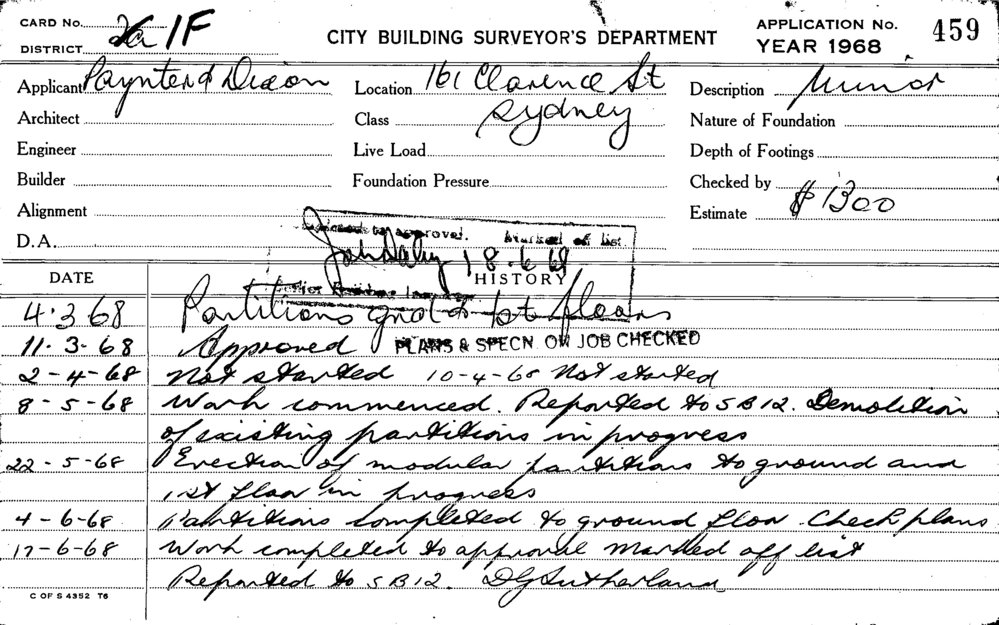 CARD No. 2a 1F
DISTRICT
CITY BUILDING SURVEYOR'S DEPARTMENT
APPLICATION No. 459
YEAR 1968
Applicant Paynter & Dixon
Location 161 Clarence St
Description Minor
Architect
Class Sydney
Nature of Foundation
Engineer
Live Load
Depth of Footings
Builder
Foundation Pressure
Checked by
Alignment
Estimate $1300
D.A.
approved. Marked off list
John Daly 18.6.68
DATE
HISTORY
4.3.68 Partitions gnd & 1st floors
11.3-68 Approved PLANS & SPECN. ON JOB CHECKED
2-4-68 Not started 10-4-68 Not started
8-5-68 Work commenced. Reported to SB12. Demolition
of existing partitions in progress
22-5-68 Erection of modular partitions to ground and
1st floor in progress
4-6-68 Partitions completed to ground floor. Check plans
17-6-68 Work completed to approval marked off list
Reported to SB12. DGSutherland
C OF S 4352 T6